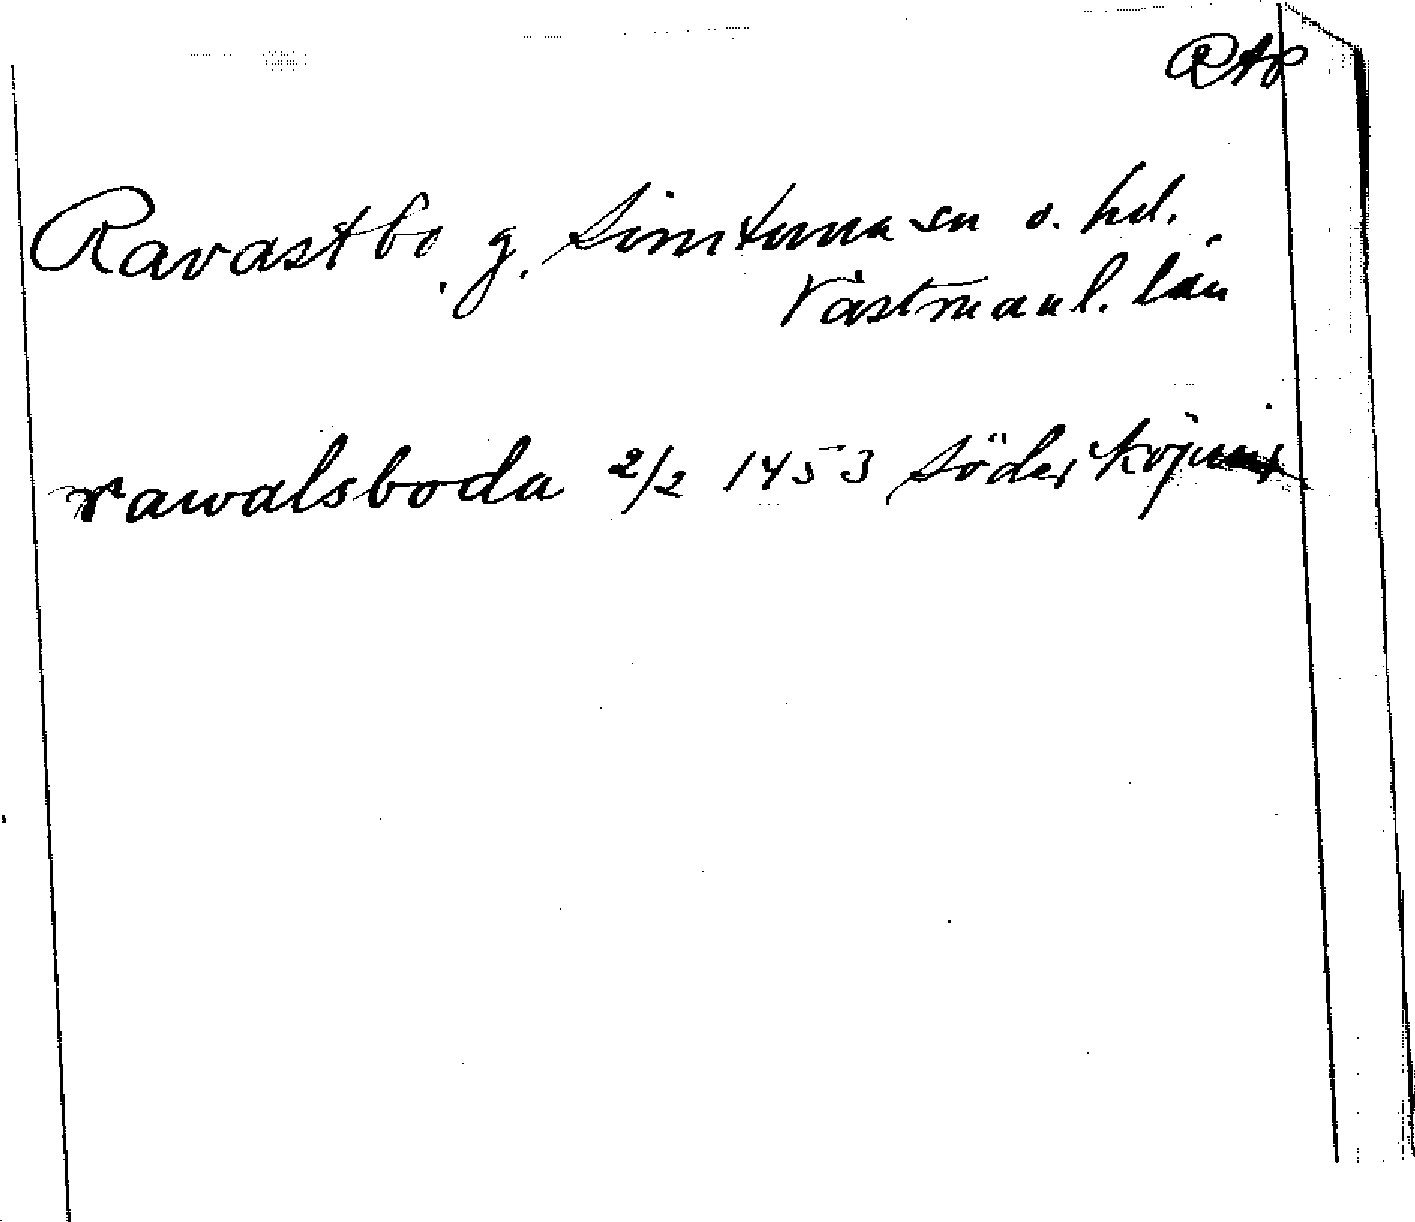 RAP
Ravastbo, g. Simtuna sn o. hd.
Västmanl. län
rawalsboda 2/2 1453 Söderköping